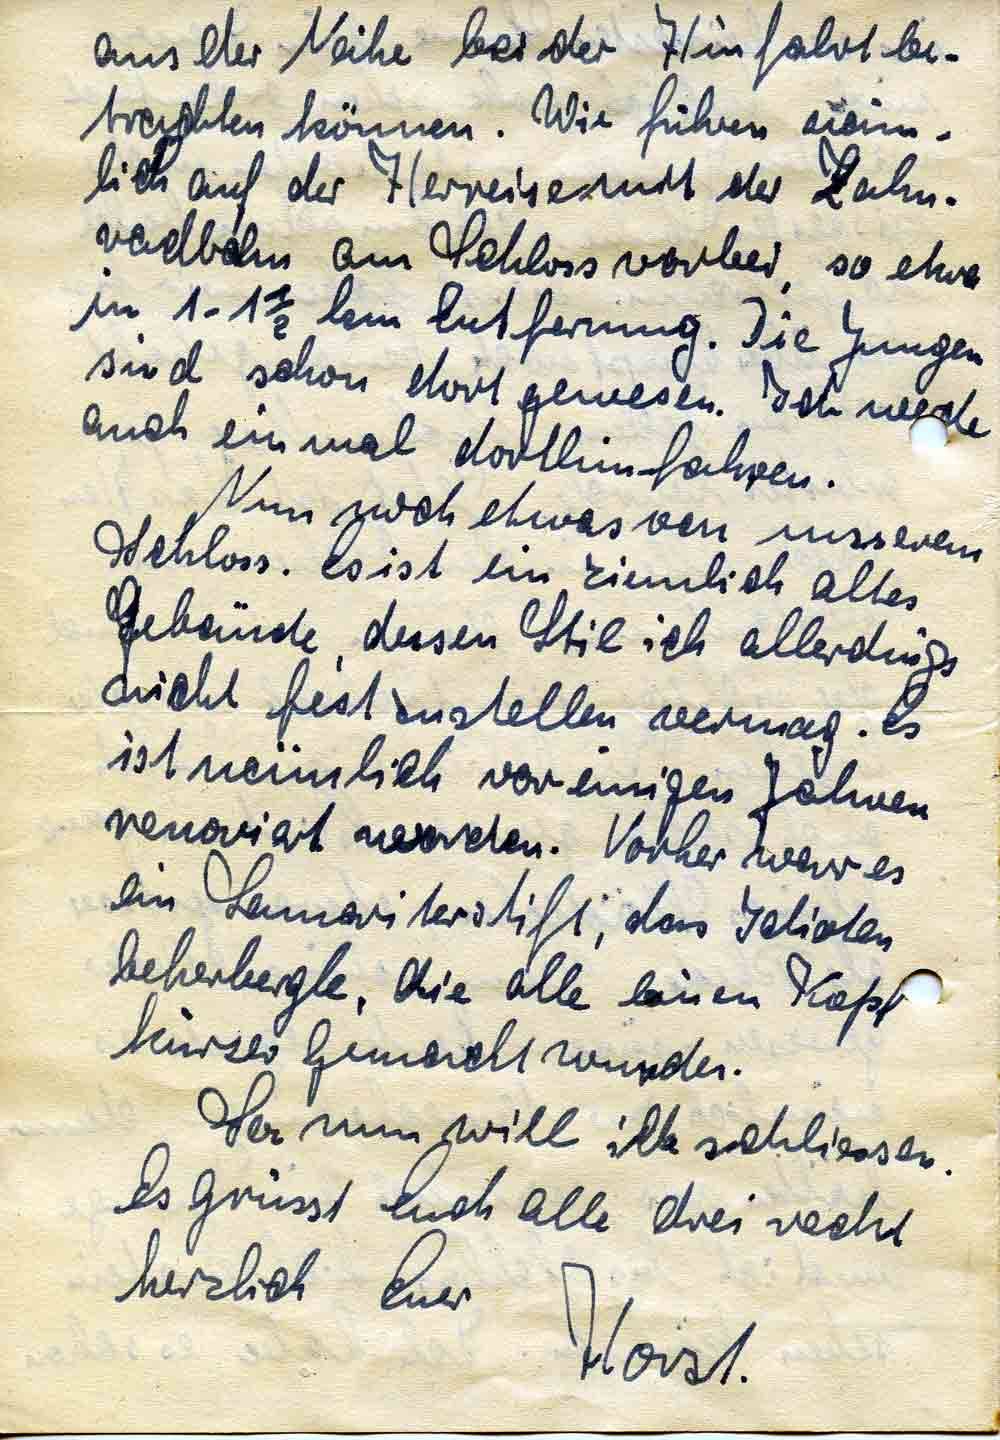 aus der Nähe bei der Hinfahrt be-
trachten können. Wir fuhren näm-
lich auf der Herreise mit der Zahn-
radbahn am Schloss vorbei, so etwa
in 1-1½ km Entfernung. Die Jungen
sind schon dort gewesen. Ich werde
auch einmal dorthinfahren.
Nun noch etwas von unserem
Schloss. Es ist ein ziemlich altes
Gebäude, dessen Stil ich allerdings
nicht festzustellen vermag. Es
ist nämlich vor einigen Jahren
renoviert worden. Vorher war es
ein Samariterstift, das Idioten
beherbergte, die alle einen Kopf
kürzer gemacht wurden.
So nun will ich schliessen.
Es grüsst Euch alle drei recht
herzlich Euer
Horst.